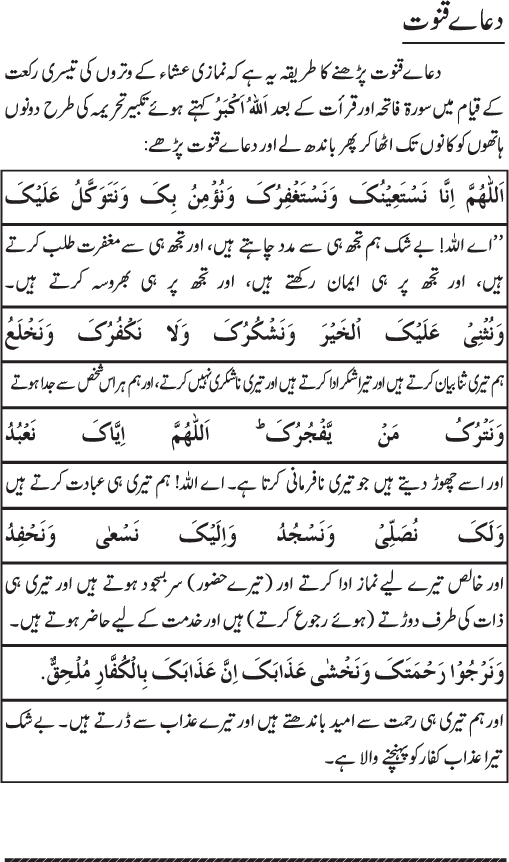 دعاے قنوت
دعاے قنوت پڑھنے کا طریقہ یہ ہے کہ نمازی عشاء کے وتروں کی تیسری رکعت
کے قیام میں سورۃ فاتحہ اور قرأت کے بعد اَللهُ اَكْبَرُ کہتے ہوئے تکبیر تحریمہ کی طرح دونوں
ہاتھوں کو کانوں تک اٹھا کر پھر باندھ لے اور دعاے قنوت پڑھے:
اَللّٰهُمَّ اِنَّا نَسْتَعِيْنُكَ وَنَسْتَغْفِرُكَ وَنُؤْمِنُ بِكَ وَنَتَوَكَّلُ عَلَيْكَ
’’اے اللہ! بے شک ہم تجھ ہی سے مدد چاہتے ہیں، اور تجھ ہی سے مغفرت طلب کرتے
ہیں، اور تجھ پر ہی ایمان رکھتے ہیں، اور تجھ پر ہی بھروسہ کرتے ہیں۔
وَنُثْنِیْ عَلَيْكَ الْخَيْرَ وَنَشْكُرُكَ وَلَا نَكْفُرُكَ وَنَخْلَعُ
ہم تیری ثنا بیان کرتے ہیں اور تیرا شکر ادا کرتے ہیں اور تیری ناشکری نہیں کرتے، اور ہم ہر اس شخص سے جدا ہوتے
وَنَتْرُكُ مَنْ يَّفْجُرُكَ ؕ اَللّٰهُمَّ اِيَّاكَ نَعْبُدُ
اور اسے چھوڑ دیتے ہیں جو تیری نافرمانی کرتا ہے۔ اے اللہ! ہم تیری ہی عبادت کرتے ہیں
وَلَكَ نُصَلِّیْ وَنَسْجُدُ وَاِلَيْكَ نَسْعٰی وَنَحْفِدُ
اور خالص تیرے لیے نماز ادا کرتے اور (تیرے حضور) سر بسجود ہوتے ہیں اور تیری ہی
ذات کی طرف دوڑتے (ہوئے رجوع کرتے) ہیں اور خدمت کے لیے حاضر ہوتے ہیں۔
وَنَرْجُوْا رَحْمَتَكَ وَنَخْشٰی عَذَابَكَ اِنَّ عَذَابَكَ بِالْكُفَّارِ مُلْحِقٌ.
اور ہم تیری ہی رحمت سے امید باندھتے ہیں اور تیرے عذاب سے ڈرتے ہیں۔ بے شک
تیرا عذاب کفار کو پہنچنے والا ہے۔